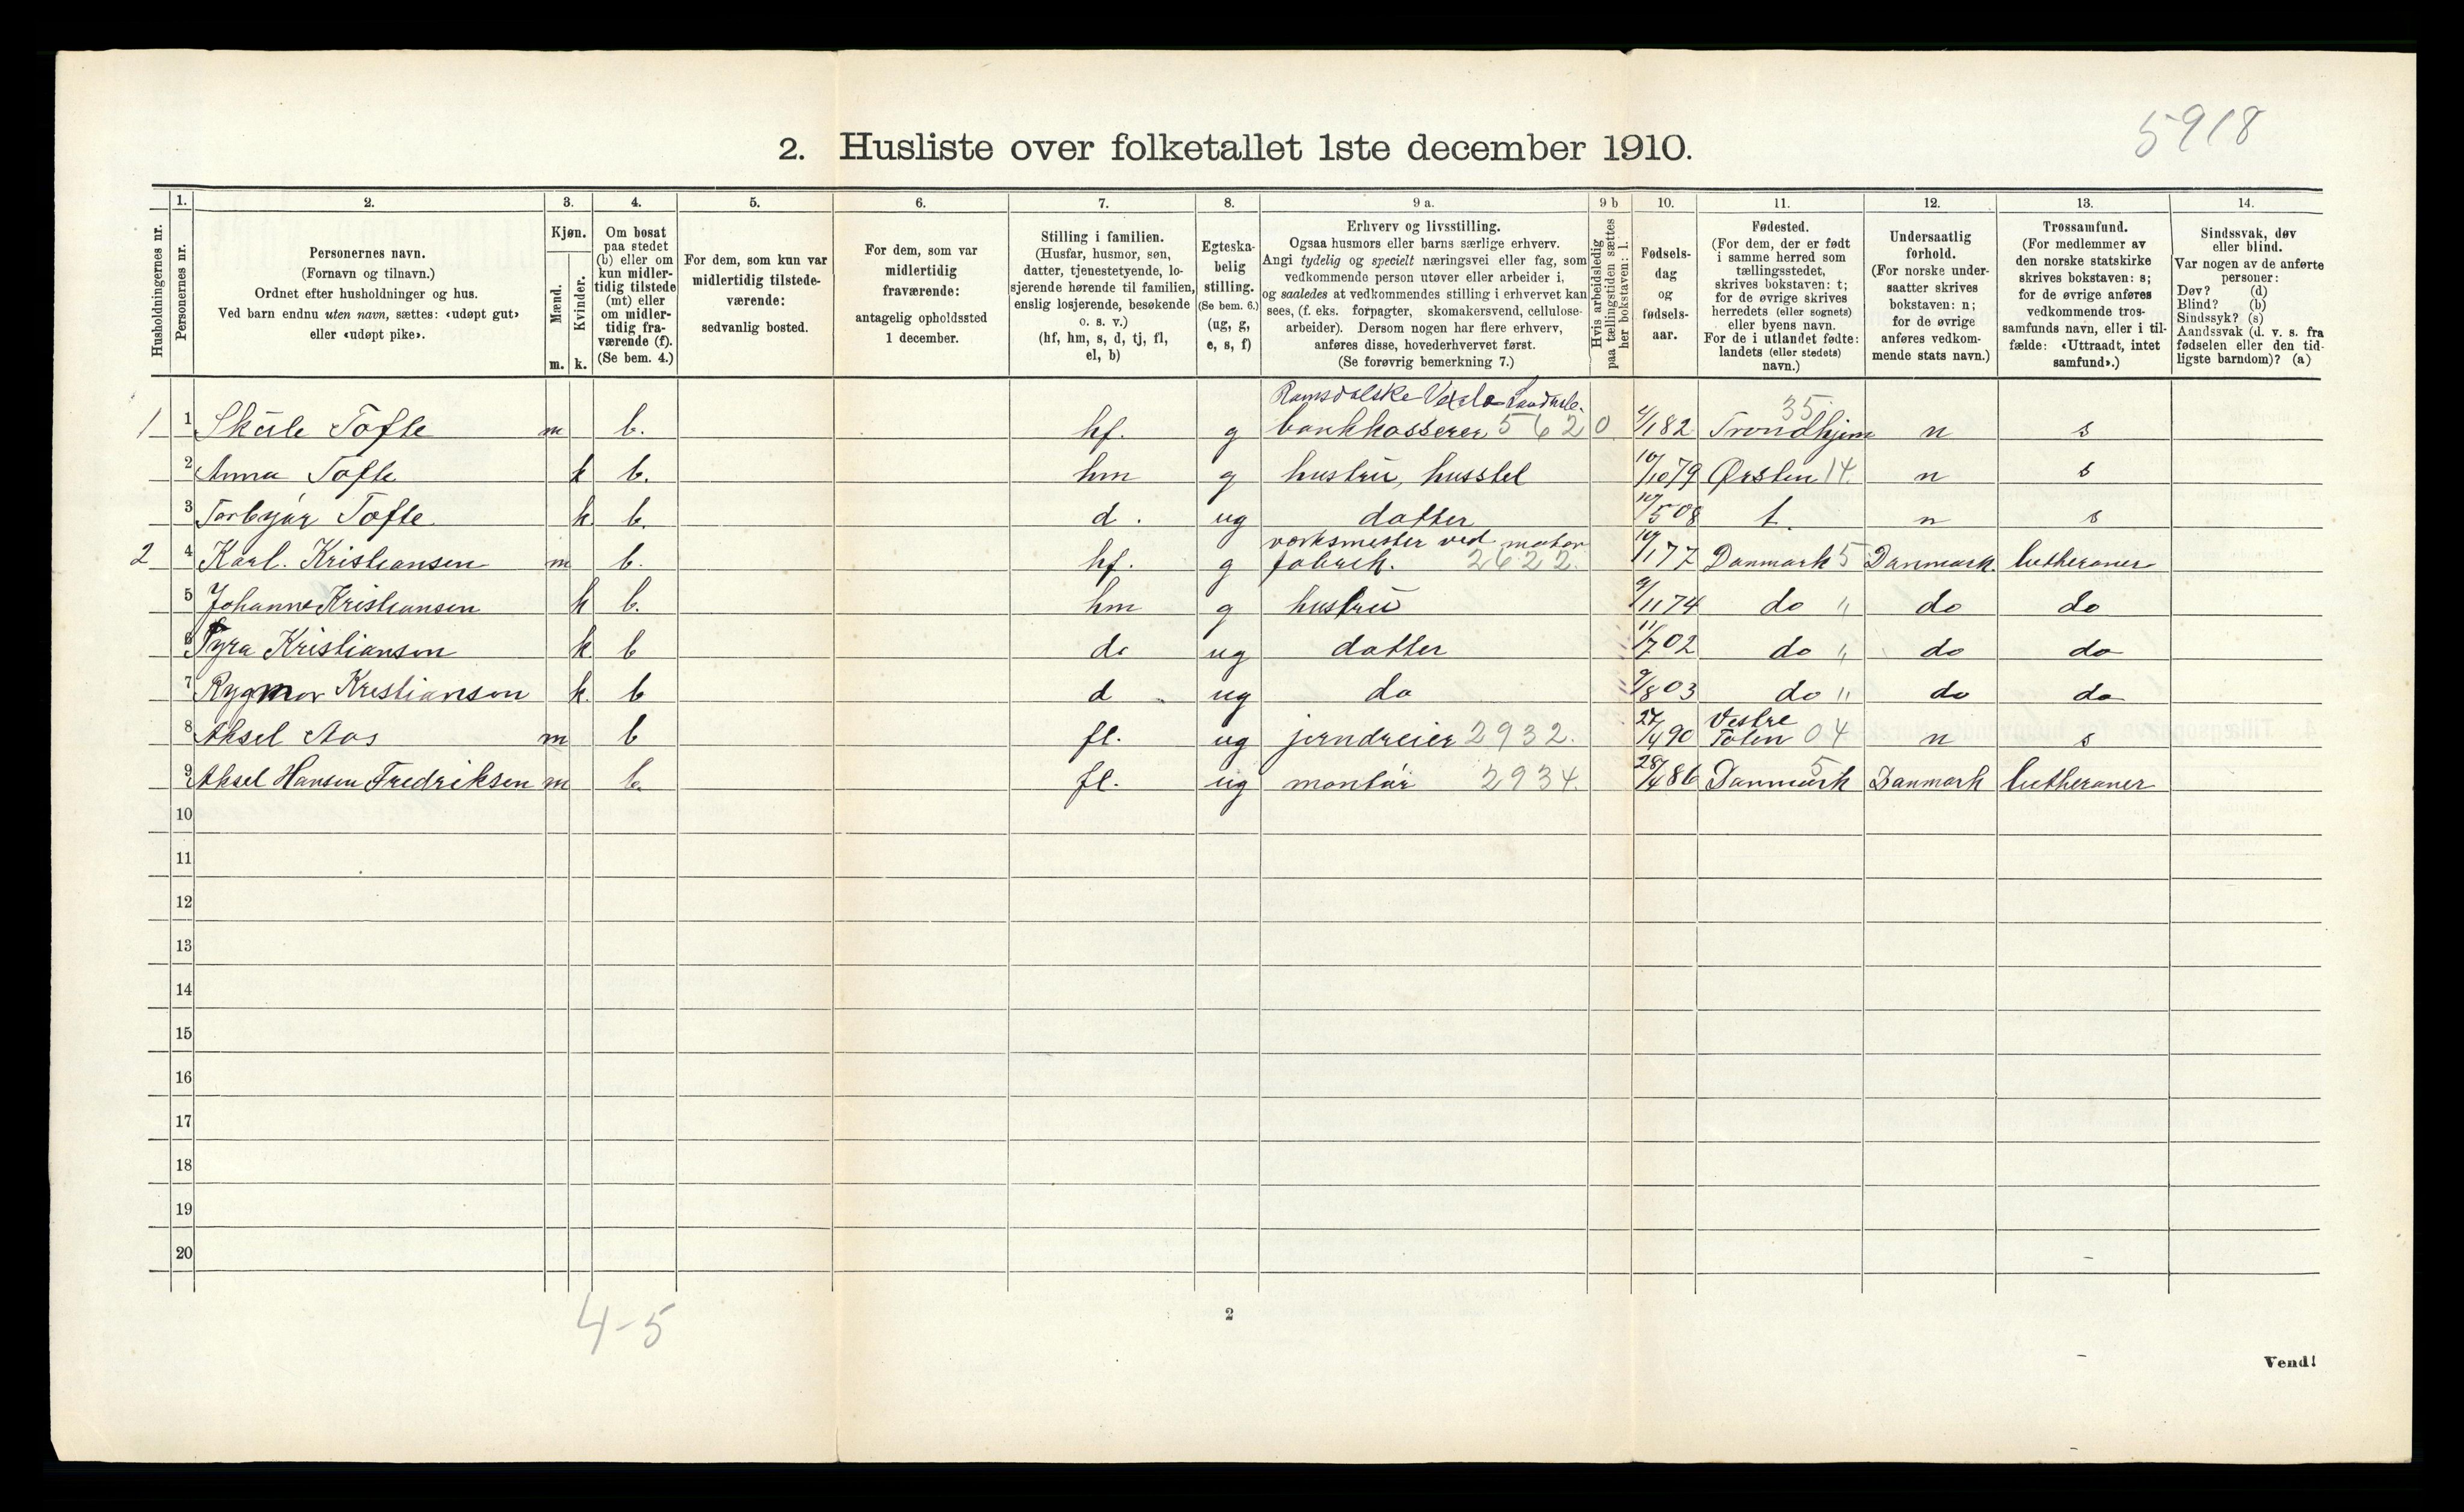 5918
2. Husliste over folketallet 1ste december 1910.
Husholdningernes nr.
1. Personernes nr.
2. Personernes navn. (Fornavn og tilnavn.) Ordnet efter husholdninger og hus. Ved barn endnu uten navn, sættes: «udøpt gut» eller «udøpt pike».
3. Kjøn. Mænd. m. Kvinder. k.
4. Om bosat paa stedet (b) eller om kun midlertidig tilstede (mt) eller om midlertidig fraværende (f). (Se bem. 4.)
5. For dem, som kun var midlertidig tilstedeværende: sedvanlig bosted.
6. For dem, som var midlertidig fraværende: antagelig opholdssted 1 december.
7. Stilling i familien. (Husfar, husmor, søn, datter, tjenestetyende, losjerende hørende til familien, enslig losjerende, besøkende o. s. v.) (hf, hm, s, d, tj, fl, el, b)
8. Egteskabelig stilling. (Se bem. 6.) (ug, g, e, s, f)
9 a. Erhverv og livsstilling. Ogsaa husmors eller barns særlige erhverv. Angi tydelig og specielt næringsvei eller fag, som vedkommende person utøver eller arbeider i, og saaledes at vedkommendes stilling i erhvervet kan sees, (f. eks. forpagter, skomakersvend, cellulosearbeider). Dersom nogen har flere erhverv, anføres disse, hovederhvervet først. (Se forøvrig bemerkning 7.)
9 b Hvis arbeidsledig paa tællingstiden sættes her bokstaven: l.
10. Fødselsdag og fødselsaar.
11. Fødested. (For dem, der er født i samme herred som tællingsstedet, skrives bokstaven: t; for de øvrige skrives herredets (eller sognets) eller byens navn. For de i utlandet fødte: landets (eller stedets) navn.)
12. Undersaatlig forhold. (For norske undersaatter skrives bokstaven: n; for de øvrige anføres vedkommende stats navn.)
13. Trossamfund. (For medlemmer av den norske statskirke skrives bokstaven: s; for de øvrige anføres vedkommende trossamfunds navn, eller i tilfælde: «Uttraadt, intet samfund».)
14. Sindssvak, døv eller blind. Var nogen av de anførte personer: Døv? (d) Blind? (b) Sindssyk? (s) Aandssvak (d. v. s. fra fødselen eller den tidligste barndom)? (a)
Romsdalske Vexle
1 1 Skule Tofte m b. hf. g bankkasserer 5620 Trondhjem 35 n s
2 Anna Tofte k b. hm g hustru, husstel 10/10 79 Ørsten 14. n s
3 Torbjør Tofte k b. d. ug datter 10/5 08 t. n s
verksmester ved motor
2 4 Karl. Kristiansen m b. hf. g fabrik. 2622. 10/1 77 Danmark 5 Danmark. lutheraner
5 Johanne Kristiansen k b. hm g hustru 9/11 74 do " do do
6 Tyra Kristianson k b d. ug datter 11/7 02 do " do do
7 Rygmor Kristianson k. b d ug do 9/8 03 do " do do
8 Aksel Aas m b fl. ug jerndreier 2932. 27/4 90 Vestre Toten 04 n s
9 Aksel Hansen Fredriksen m b. fl. ug montør 2934. 28/4 86 Danmark 5 Danmark lutheraner
10
11
12
13
14
15
16
17
18
19
20
4-5
2
Vend!